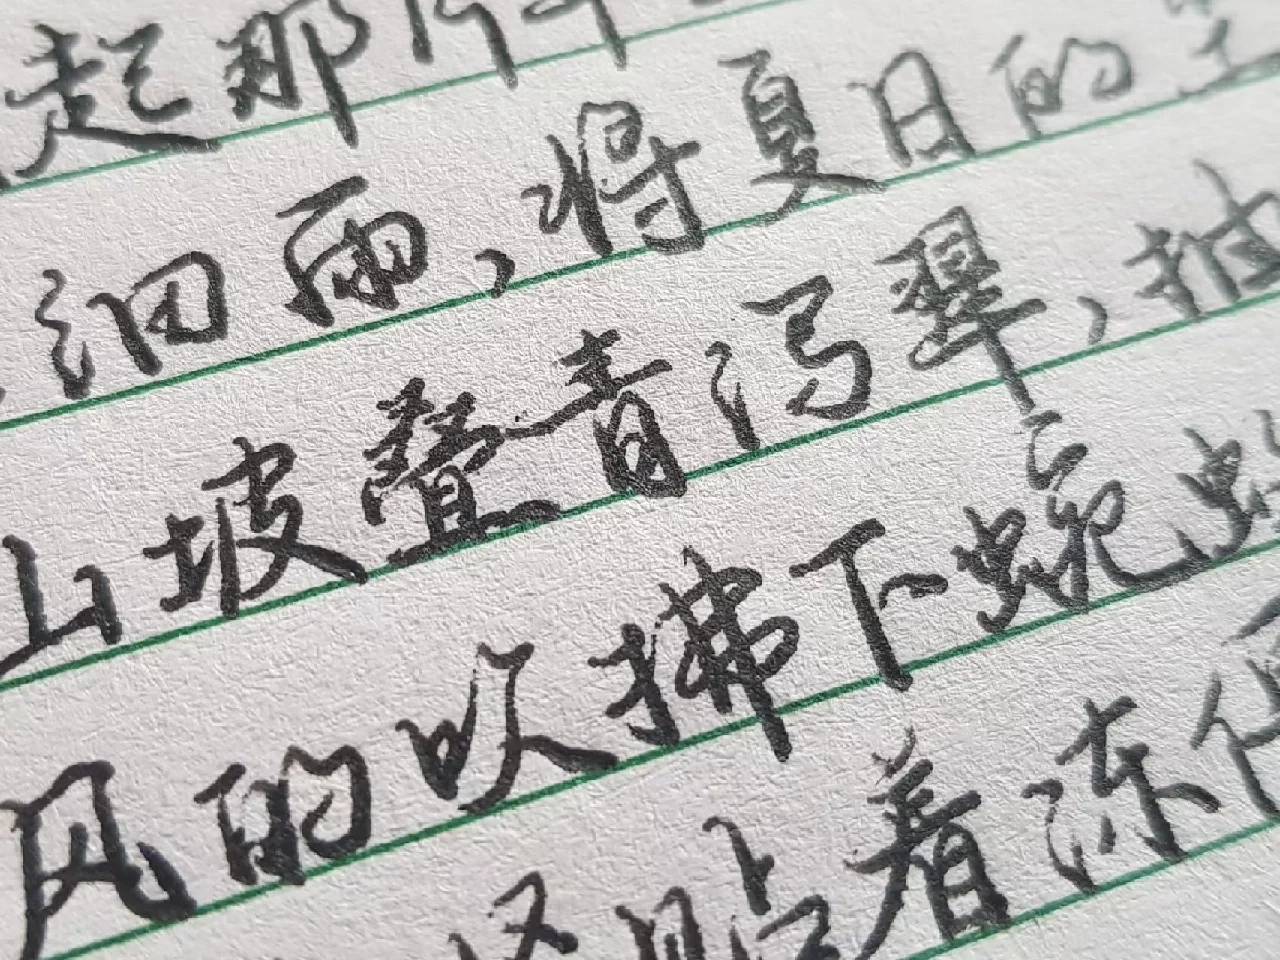 起那
细雨,将夏日的
山坡叠青泻翠,抽
风的吹拂下蜿蜒
又贴着冻